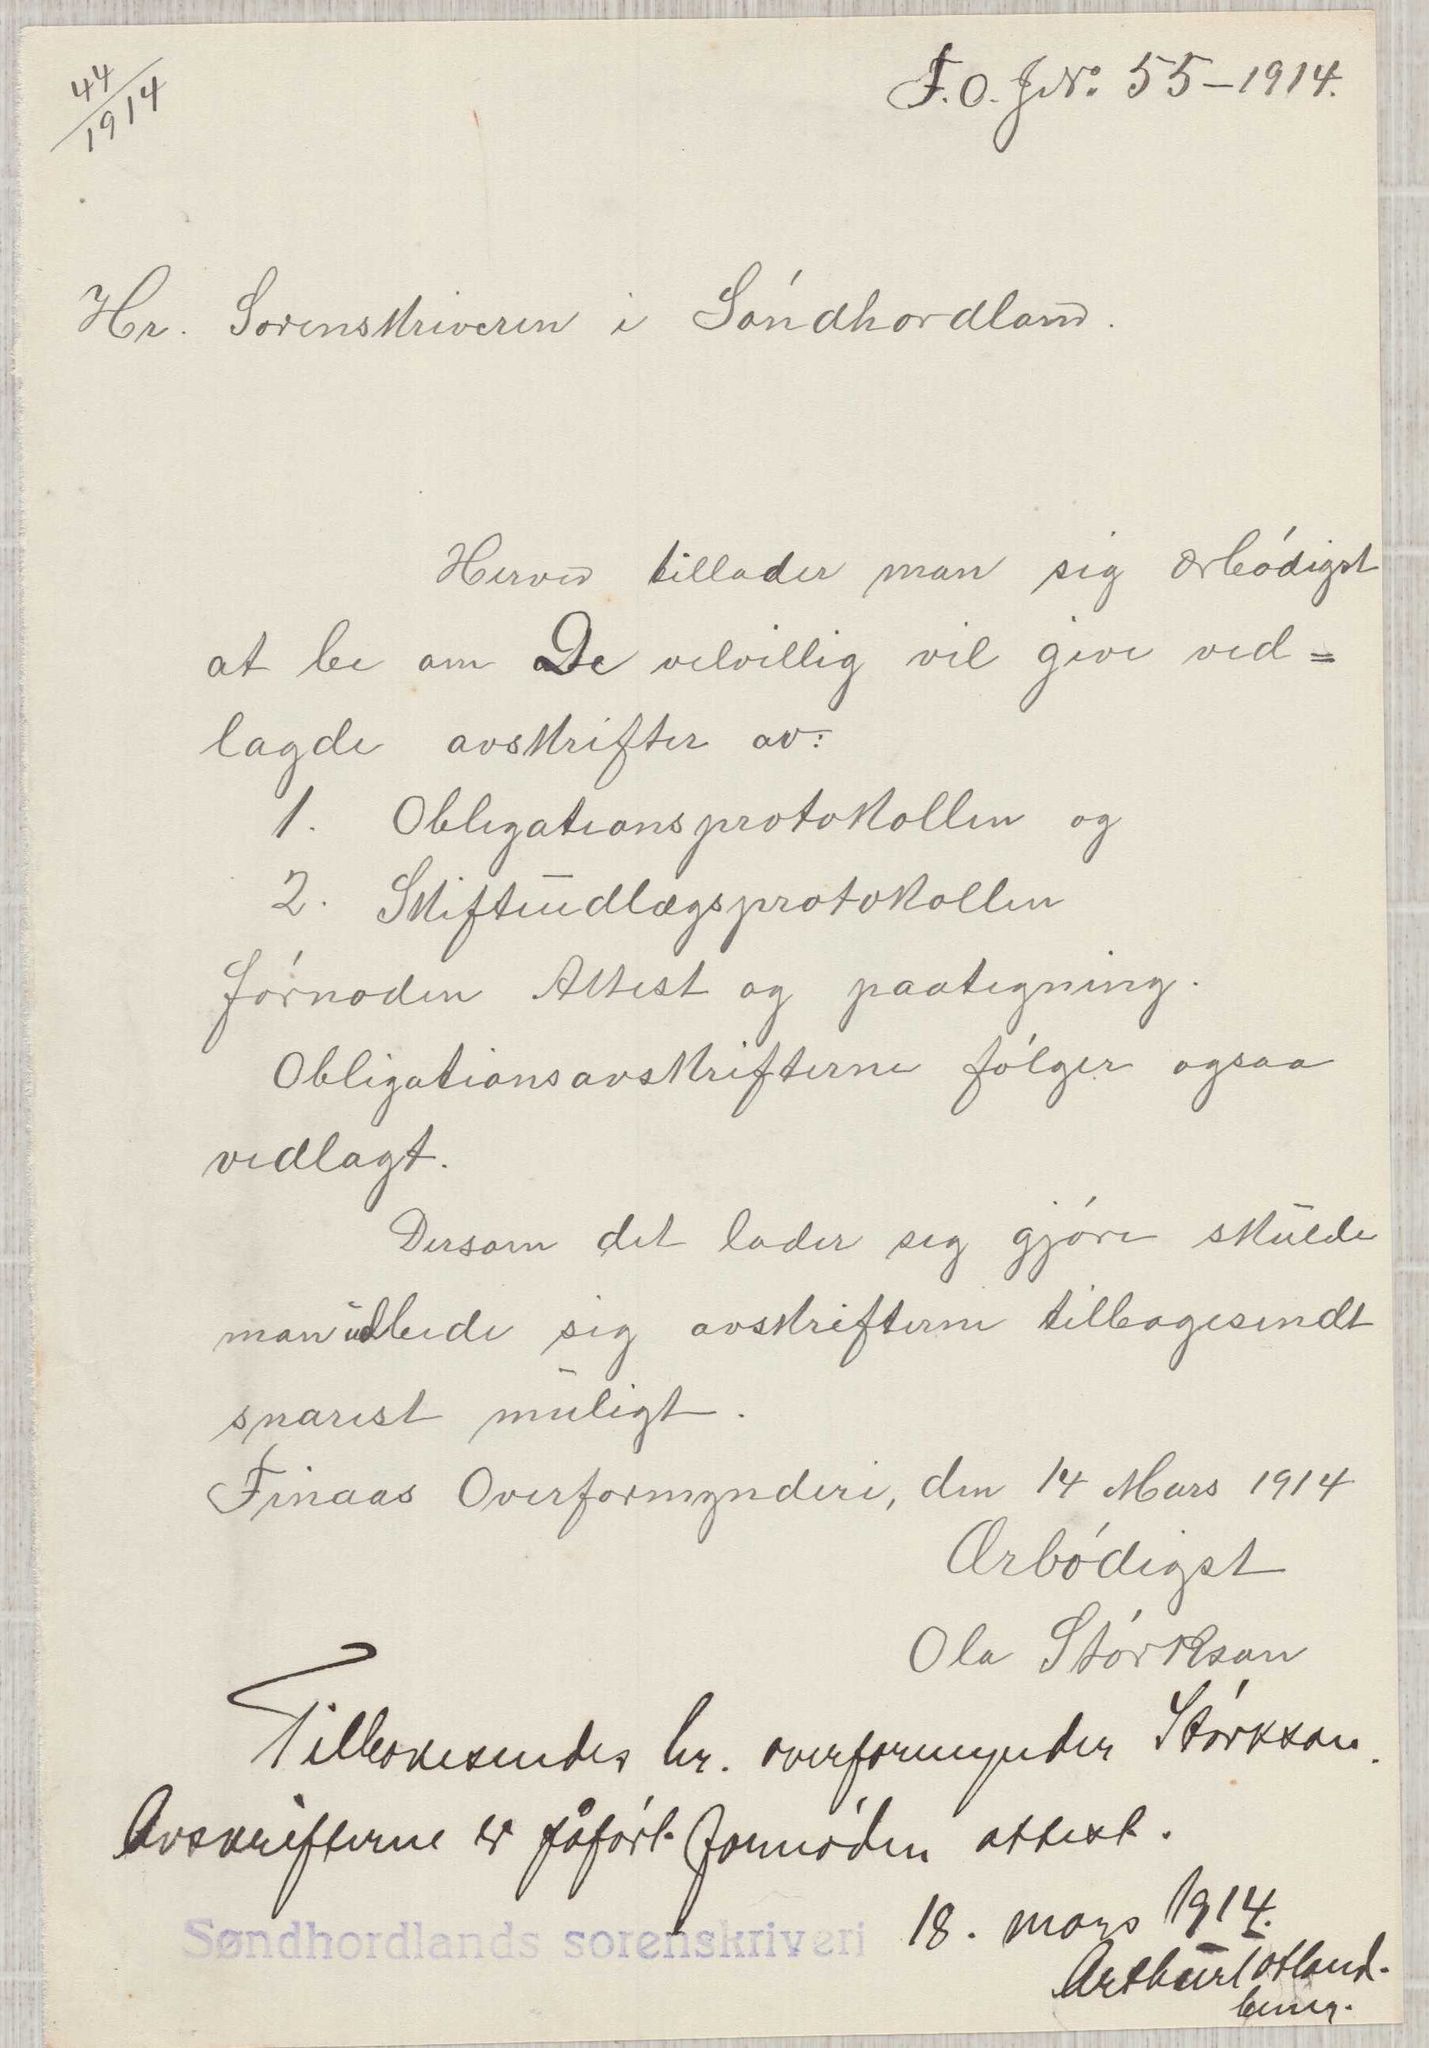 44
1914
F. O. J№. 55-1914.
Hr. Sorenskriveren i Søndhordland.
Herved tillader man sig ærbødigst
at be om De velvillig vil give ved=
lagde avskrifter av:
1. Obligationsprotokollen og
2. Skifteudlægsprotokollen
førnøden Attest og paategning.
Obligationsavskrifterne følger ogsaa
vedlagt.
Dersom det lader sig gjøre skulde
man udbede sig avskrifterne tilbagesendt
snarest muligt.
Finaas Overformynderi, den 14 Mars 1914
Ærbødigst
Ola Størkson
Tilbakesendes hr. overformynder Størkson.
Avskrifterne er påført fornøden attest.
Søndhordlands sorenskriveri 18. mars 1914.
Arthur